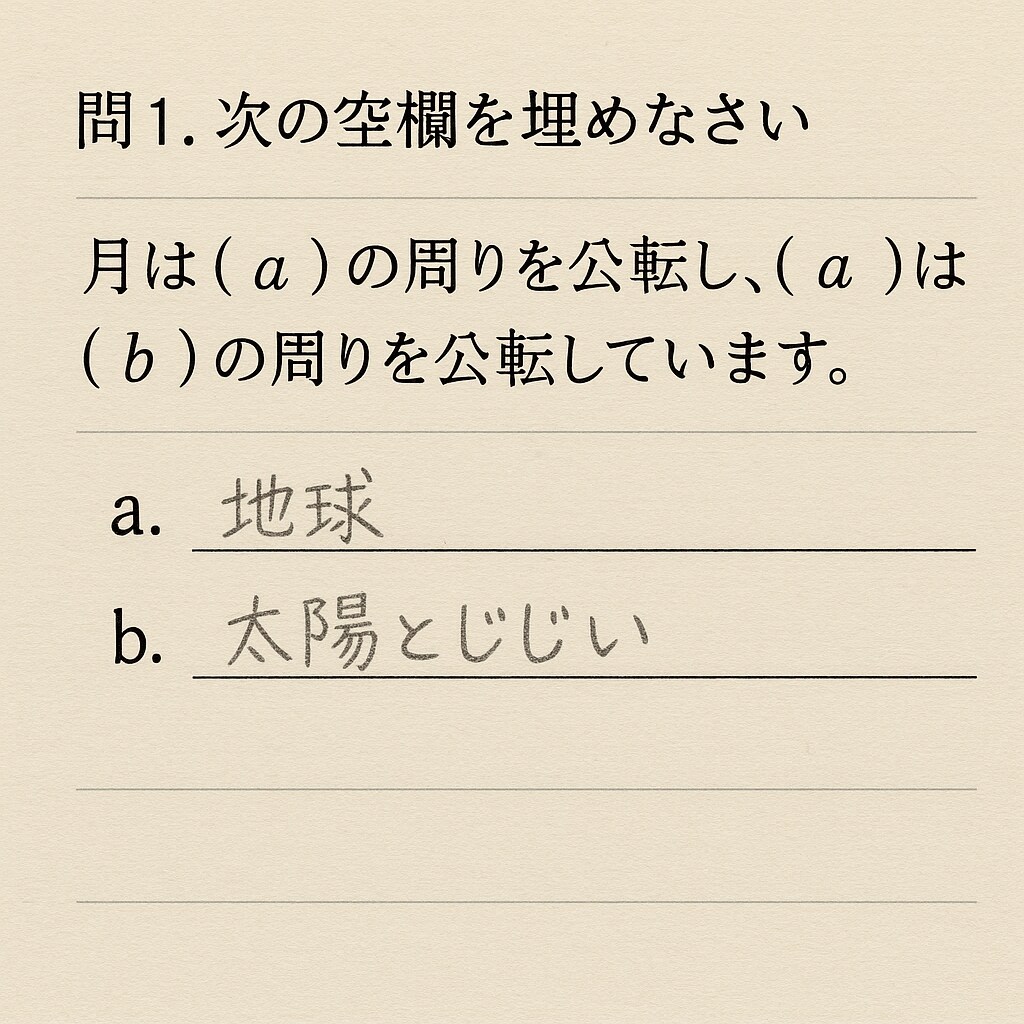 問1. 次の空欄を埋めなさい
月は( a )の周りを公転し、( a )は
( b )の周りを公転しています。
a. 地球
b. 太陽とじじい